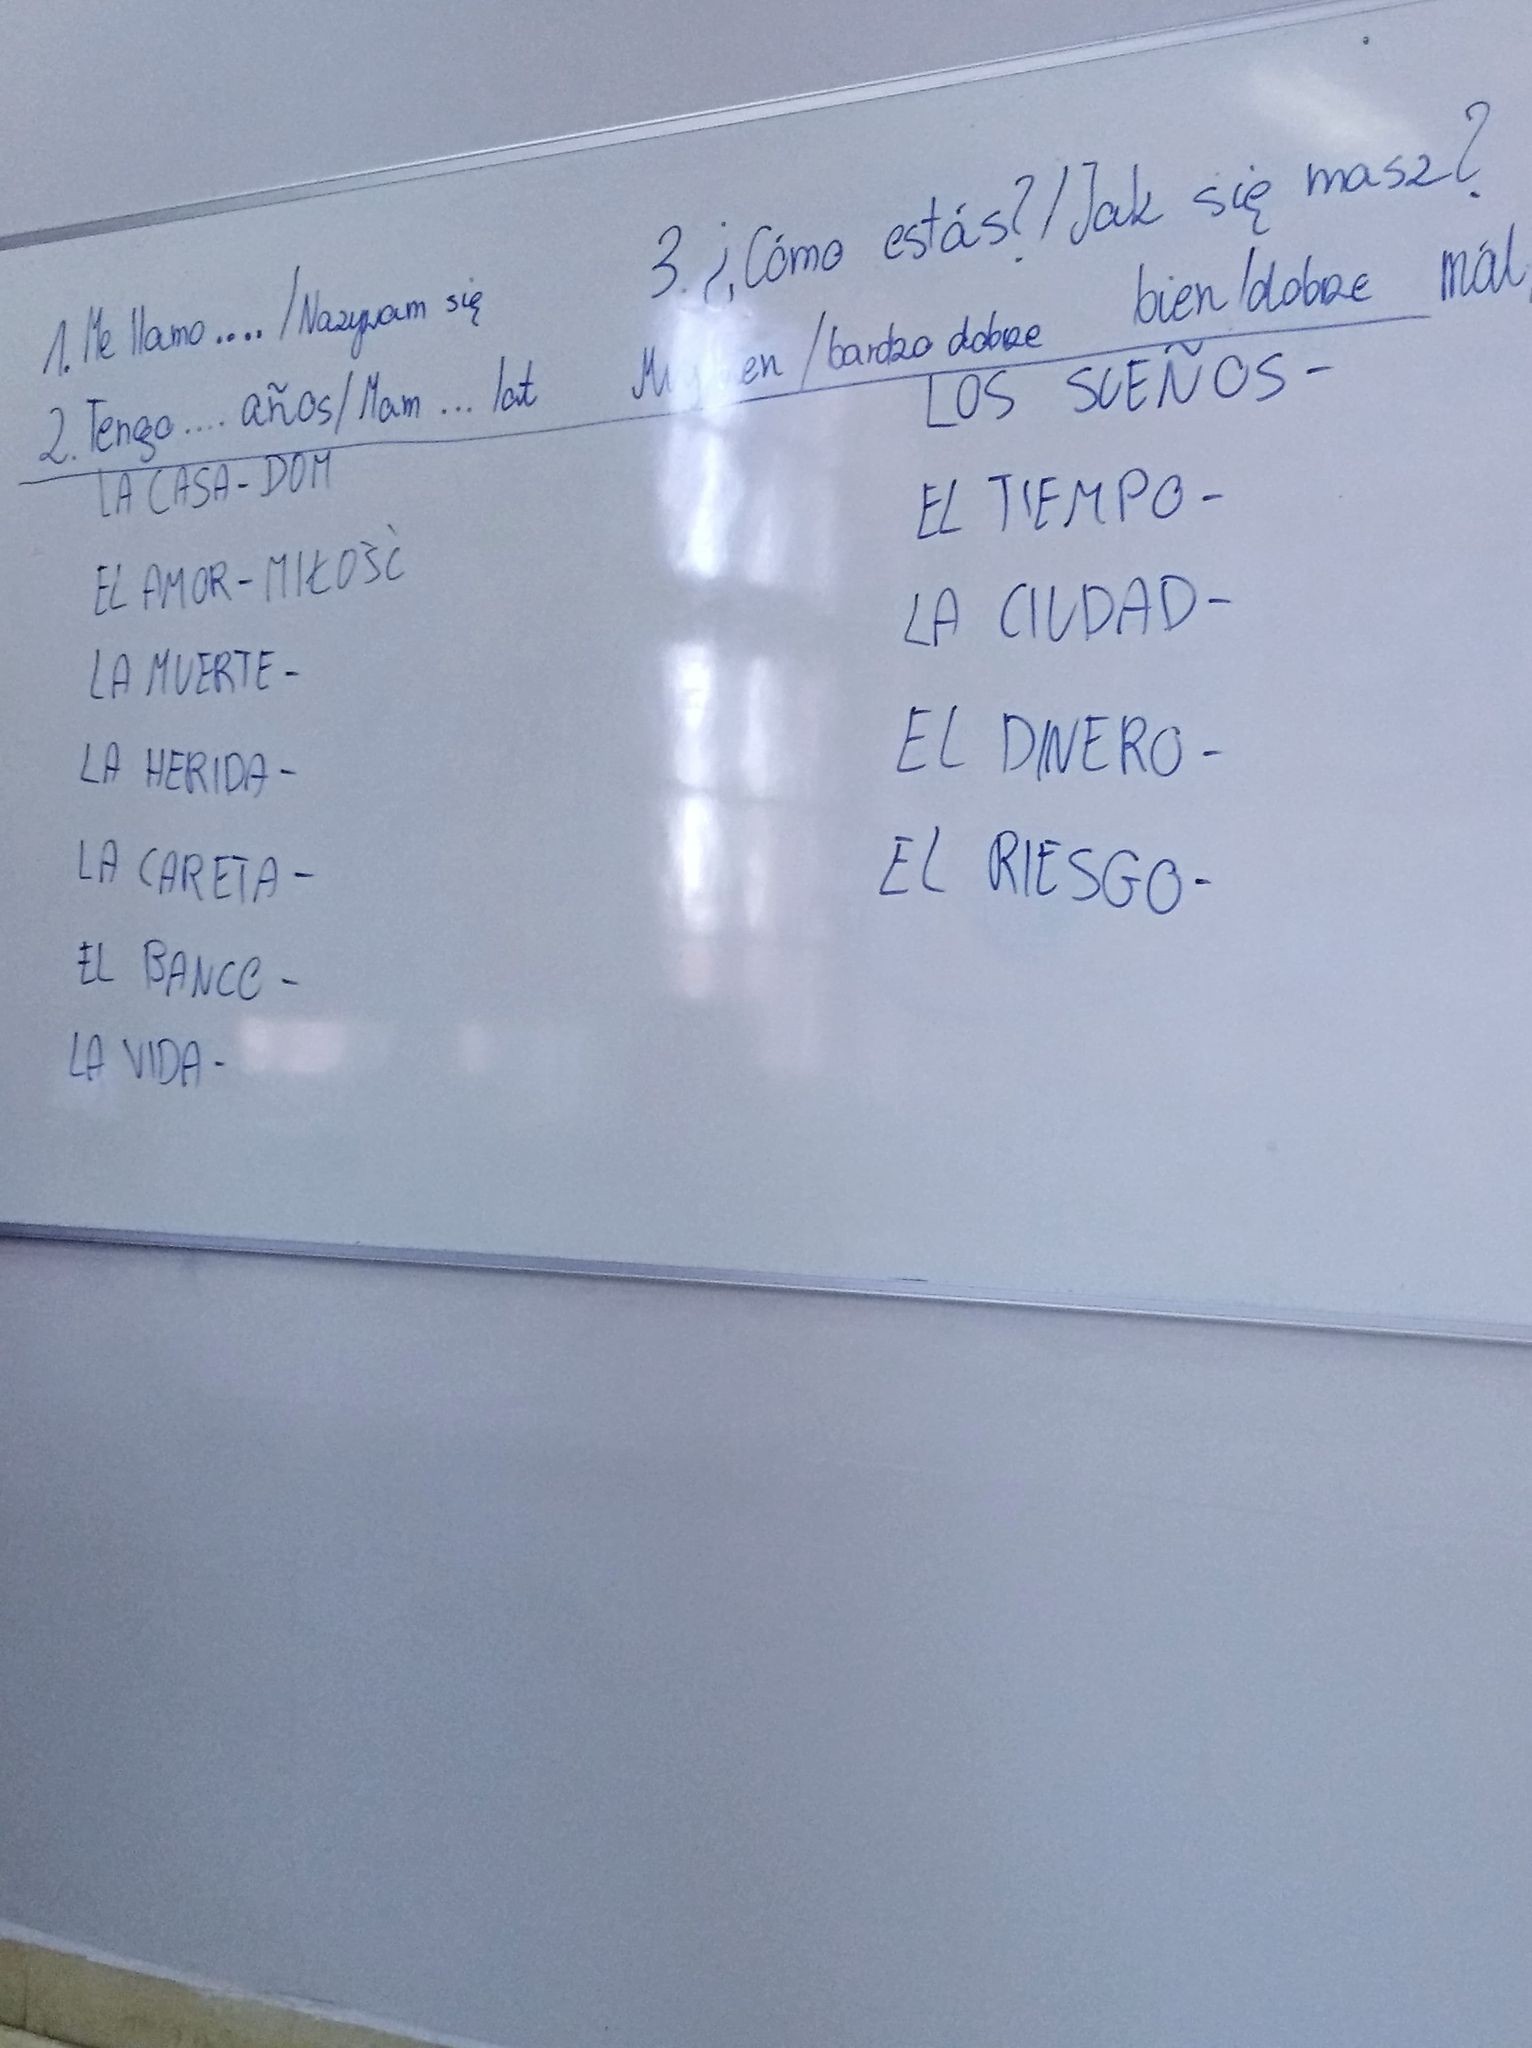 1. Me llamo.... /Nazywam się
2. Tengo.... años/Mam ... lat
3. ¿Cómo estás?/Jak się masz?
bien/dobrze
/bardzo dobrze
LA CASA-DOM
EL AMOR-MIŁOŚĆ
LA MUERTE-
LA HERIDA-
LA CARETA-
EL BANCO-
LA VIDA-
LOS SUEÑOS-
EL TIEMPO-
LA CIUDAD-
EL DINERO-
EL RIESGO-